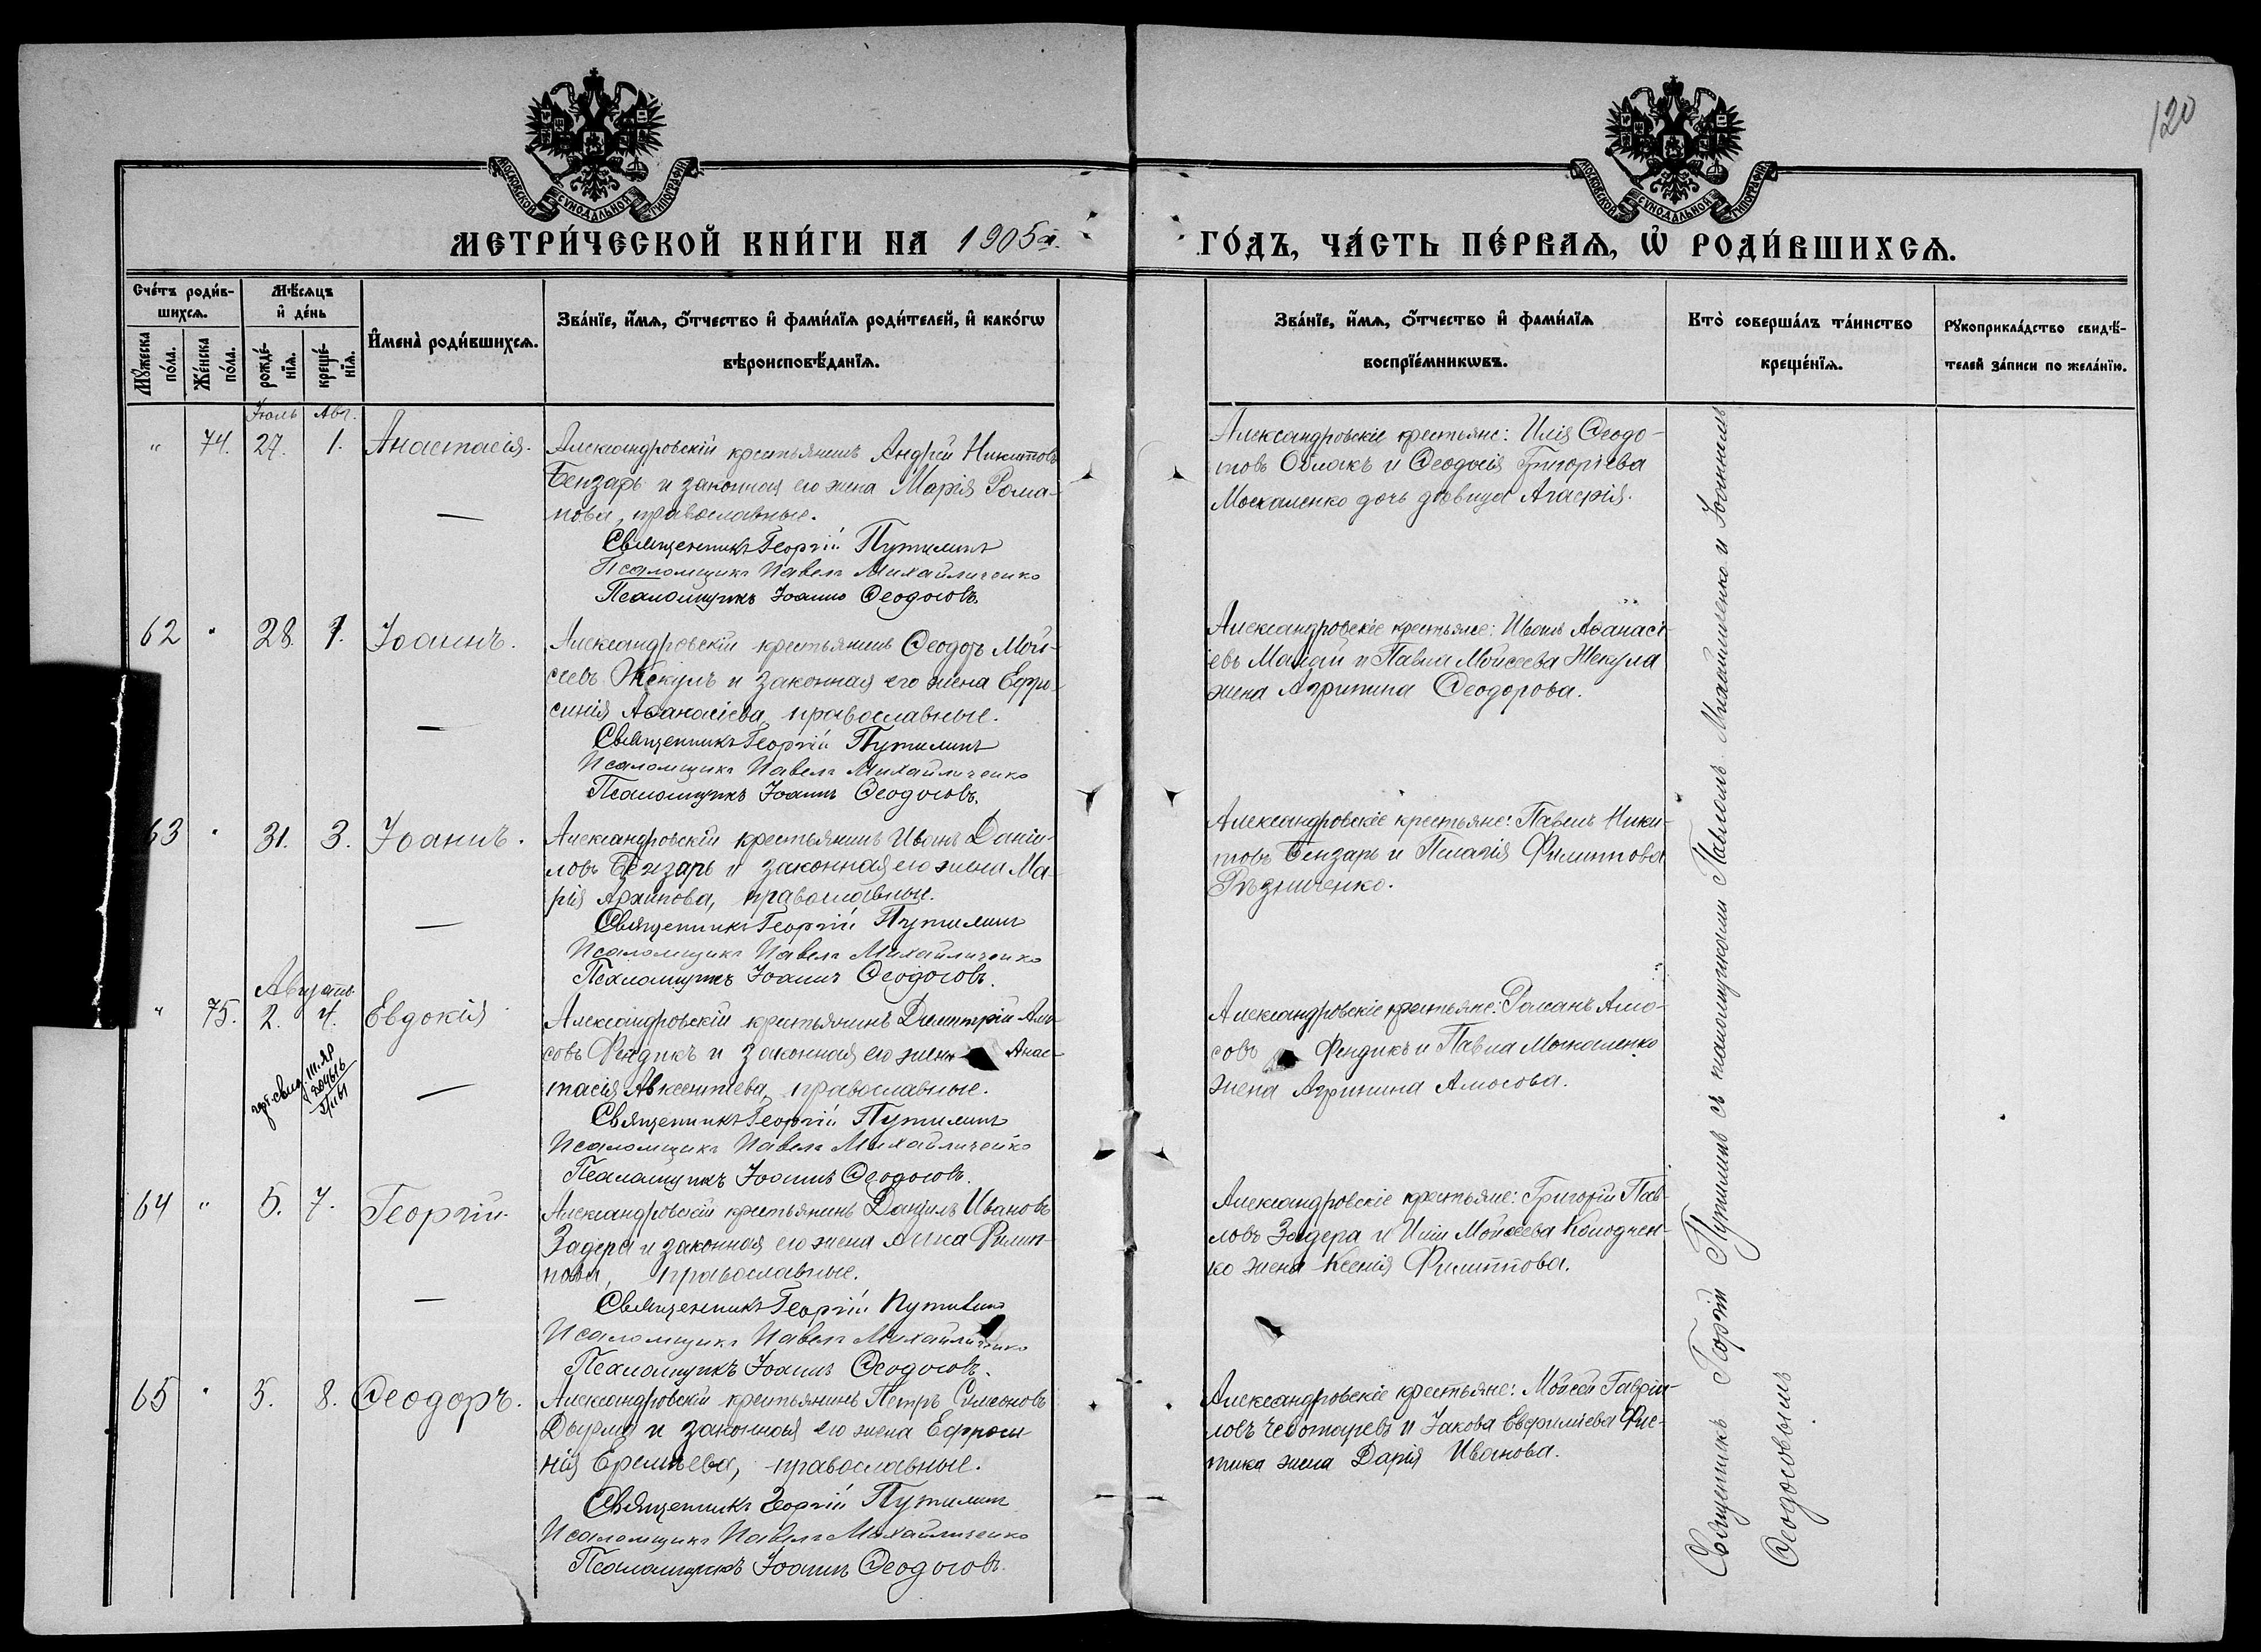 120
МОСКОВСКОЙ СѴНОДАЛЬНОЙ ТИПОГРАФІИ
МОСКОВСКОЙ СѴНОДАЛЬНОЙ ТИПОГРАФІИ
МЕТРИ́ЧЕСКОЙ КНИ́ГИ НА 1905й.
ГО́ДЪ, ЧА́СТЬ ПЕ́РВАѦ, Ѡ҆ РОДИ́ВШИХСѦ.
Сче́тъ роди́в-
шихсѧ.
Мꙋ́жеска
по́ла.
Же́нска
по́ла.
Мѣ́сѧцъ
и҆ де́нь
рожде́-
нїѧ.
креще́-
нїѧ.
И҆мена̀ роди́вшихсѧ.
Зва́нїе, и҆́мѧ, ѻ҆́тчество и҆ фами́лїѧ роди́телей, и҆ како́гѡ
вѣроисповѣ́данїѧ.
Зва́нїе, и҆́мѧ, ѻ҆́тчество и҆ фами́лїѧ
воспрїе́мникѡвъ.
Кто̀ соверша́лъ та́инство
креще́нїѧ.
Рꙋкоприкла́дство свидѣ́-
телей за́писи по жела́нїю.
Іюль Авг.
" 74. 27. 1. Анастасія.
Александровскій крестьянинъ Андрей Никитовъ
Бензарь и законная его жена Марія Рома-
нова, православные.
Священникъ Георгій Путилинъ
Псаломщикъ Павелъ Михайличенко
Псаломщикъ Іоаннъ Ѳеодосовъ.
Александровскіе крестьяне: Илія Ѳеодо-
товъ Облакъ и Ѳеодосія Григоріева
Москаленко дочь дѣвица Агафія.
62 " 28 1. Іоаннъ.
Александровскій крестьянинъ Ѳеодоръ Мой-
сеевъ Жекулъ и законная его жена Ефро-
синія Аѳанасіева, православные.
Священникъ Георгій Путилинъ
Псаломщикъ Павелъ Михайличенко
Псаломщикъ Іоаннъ Ѳеодосовъ.
Александровскіе крестьяне: Иванъ Аѳанасі-
евъ Малай и Павла Мойсеева Жекула
жена Агрипина Ѳеодорова.
63 " 31. 3. Іоаннъ.
Александровскій крестьянинъ Иванъ Даніи-
ловъ Бензарь и законная его жена Ма-
рія Архипова, православные.
Священникъ Георгій Путилинъ
Псаломщикъ Павелъ Михайличенко
Псаломщикъ Іоаннъ Ѳеодосовъ.
Александровскіе крестьяне: Павелъ Ники-
товъ Бензарь и Пелагія Филиппова
Рѣзниченко.
Августъ
" 75. 2. 4. Евдокія
Александровскій крестьянинъ Димитрій Амо-
совъ Фендикъ и законная его жена Анас-
тасія Авксентіева, православные.
Священникъ Георгій Путилинъ
Псаломщикъ Павелъ Михайличенко
Псаломщикъ Іоаннъ Ѳеодосовъ.
Александровскіе крестьяне: Романъ Амо-
совъ Фендикъ и Павла Москаленко
жена Агрипина Амосова.
64 " 5. 7. Георгій
Александровскій крестьянинъ Даніилъ Ивановъ
Задера и законная его жена Анна Филип-
пова, православные.
Священникъ Георгій Путилинъ
Псаломщикъ Павелъ Михайличенко
Псаломщикъ Іоаннъ Ѳеодосовъ.
Александровскіе крестьяне: Григорій Пав-
ловъ Задера и Иліи Мойсеева Колодчен-
ко жена Ксенія Филиппова.
65 " 5. 8. Ѳеодоръ.
Александровскій крестьянинъ Петръ Симеоновъ
и законная его жена Ефроси-
нія Еремѣева, православные.
Священникъ Георгій Путилинъ
Псаломщикъ Павелъ Михайличенко
Псаломщикъ Іоаннъ Ѳеодосовъ.
Александровскіе крестьяне: Мойсей Гавріи-
ловъ Чеботаревъ и Іакова Евфиміева
жена Дарія Иванова.
Священникъ Георгій Путилинъ съ псаломщиками Павломъ Михайличенко и Іоанномъ
Ѳеодосовымъ